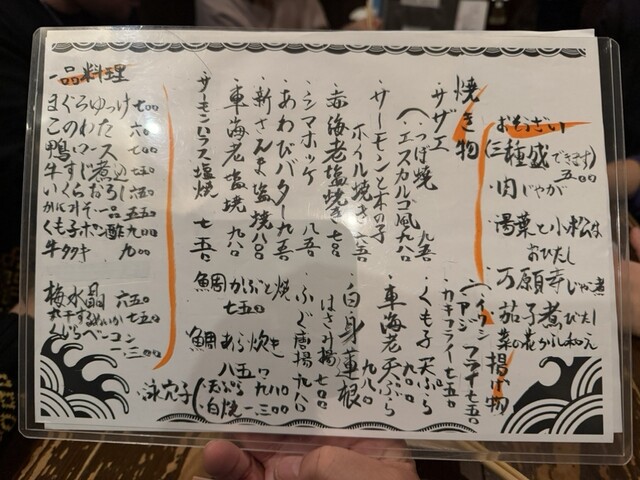 おそうざい
(三種盛できます)
五00
・肉じゃが
・湯葉と小松な
おひたし
・万願寺じゃこ煮
・茄子煮びたし
菜の花からし和え
焼き物
・サザエ
(・つぼ焼
・エスカルゴ風 九八0
・サーモンと木の子
ホイル焼き
赤海老塩焼き 七八0
・シマホッケ 八五0
・あわびバター 九五0
・新さんま塩焼 八八0
・車海老塩焼 九八0
・サーモンハラス塩焼 七五0
鯛かぶと焼
七五0
鯛あら炊き
八五0
揚げ物
(・イワシ
・アジ フライ 七五0
カキフライ 七五0
・くも子天ぷら
九00
・車海老天ぷら
九八0
白身蓮根
はさみ揚 七00
ふぐ唐揚 九八0
・泳穴子
(天ぷら 九八0
白焼 一、三00
一品料理
まぐろゆっけ 七00
このわた 六00
鴨ロース 七五0
牛すじ煮込 七五0
いくらおろし 六五0
かにみそ一品 五五0
くも子ポン酢 九00
牛タタキ 九00
梅水晶 六五0
丸干するめいか 七五0
くじらベーコン
一、三00